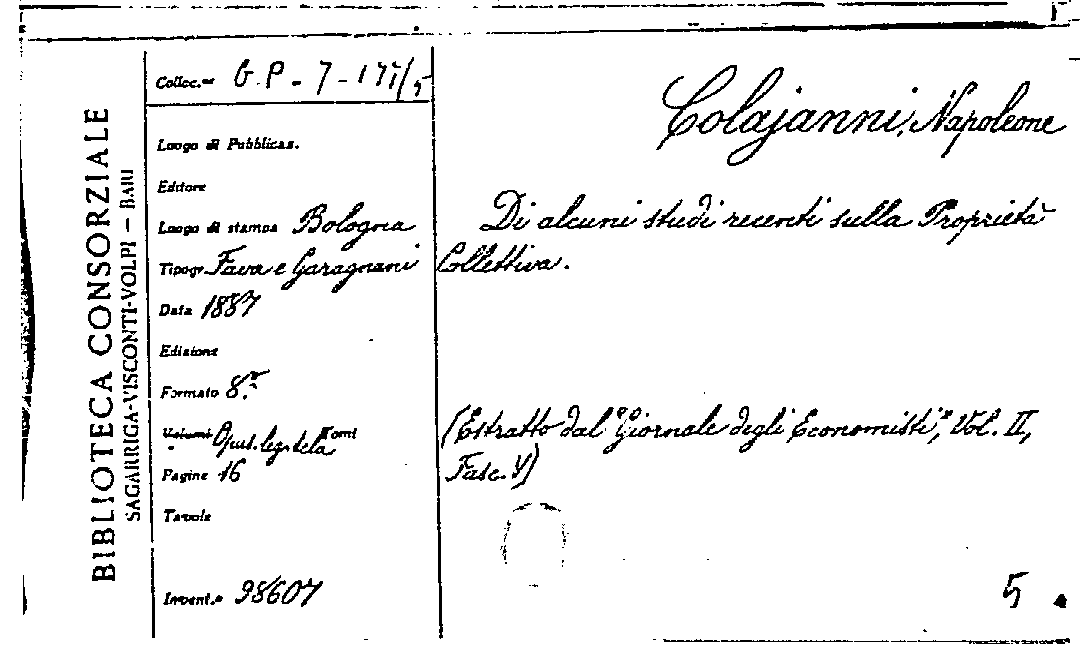 BIBLIOTECA CONSORZIALE
SAGARRIGA-VISCONTI-VOLPI — BARI
Colloc.ne G.P. - 7 - 177/5
Luogo di Pubblicaz.
Editore
Luogo di stampa Bologna
Tipogr. Fava e Garagnani
Data 1887
Edizione
Formato 8.°
Volumi Opus. leg. tela Tomi
Pagine 16
Tavole
Invent.° 98607
Colajanni, Napoleone
Di alcuni studi recenti sulla Proprietà
Collettiva.
(Estratto dal "Giornale degli Economisti", Vol. II,
Fasc. V)
5